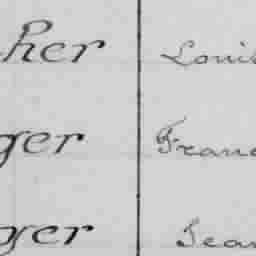 her Loui
ger Franc
ger Jean